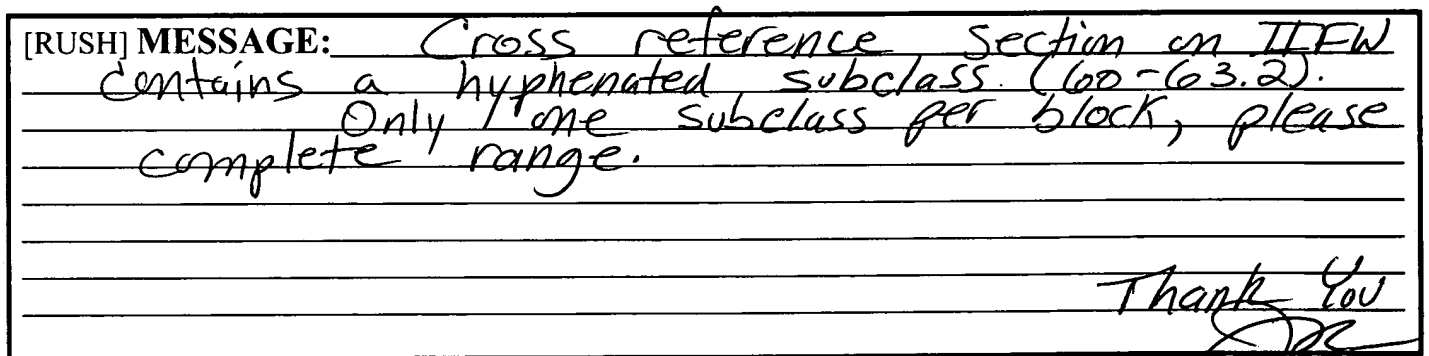 [RUSH] MESSAGE: Cross reference section on IIFW
contains a hyphenated subclass (60-63.2).
Only one subclass per block, please
complete range.
Thank You